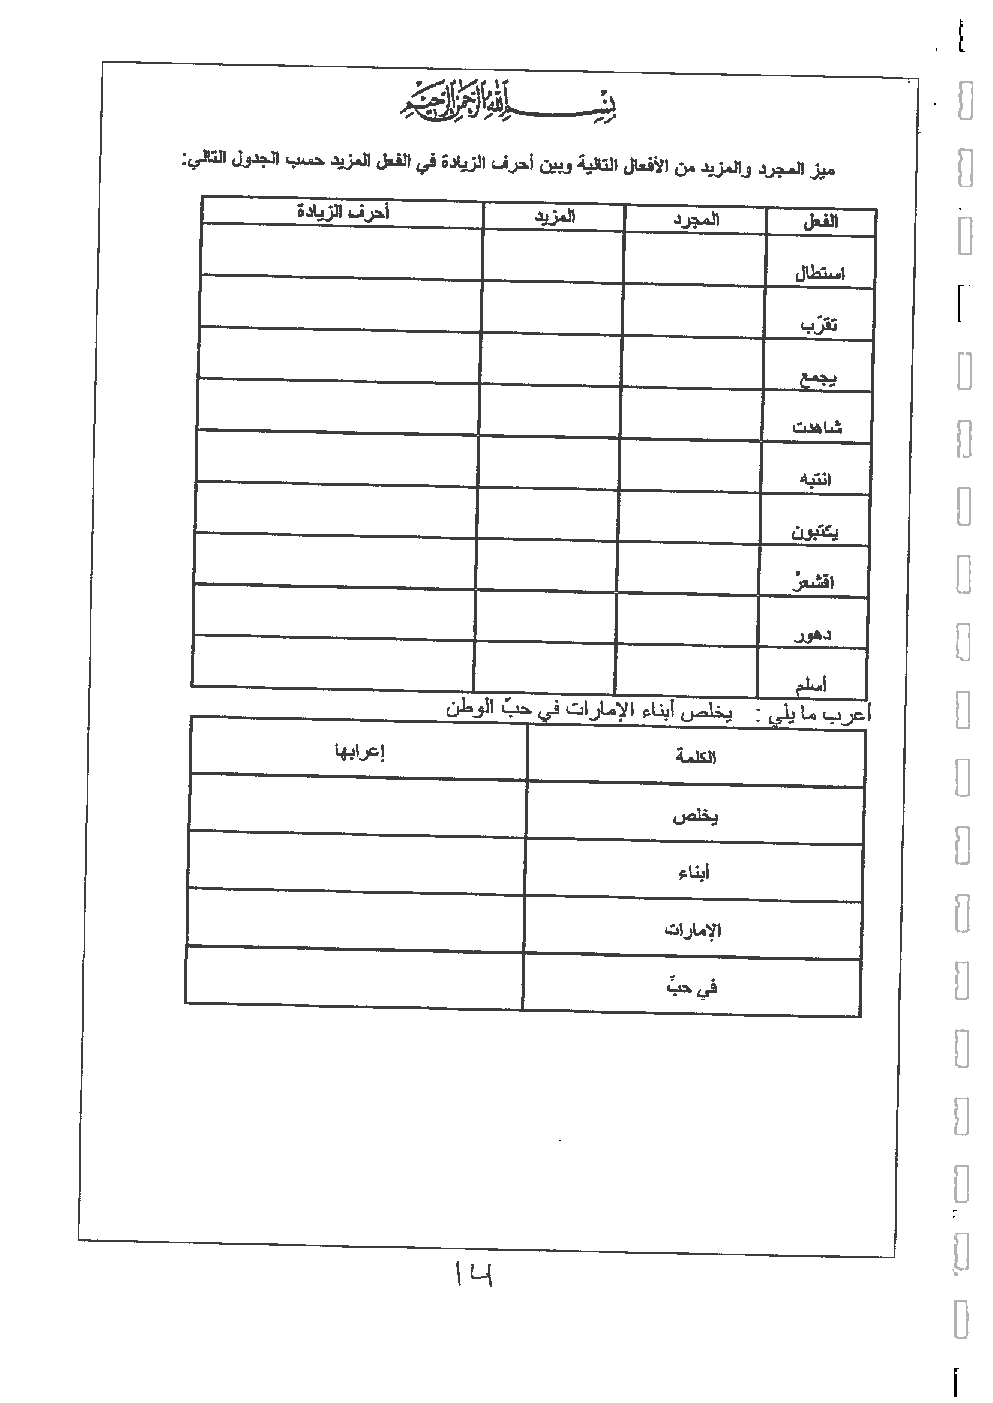 بسم الله الرحمن الرحيم
ميز المجرد والمزيد من الأفعال التالية وبين أحرف الزيادة في الفعل المزيد حسب الجدول التالي:
الفعل المجرد المزيد أحرف الزيادة
استطال
تقرّب
يجمع
شاهدت
انتبه
يكتبون
اقشعرّ
دهور
أسلم
أعرب ما يلي : يخلص أبناء الإمارات في حبّ الوطن
الكلمة إعرابها
يخلص
أبناء
الإمارات
في حبّ
14